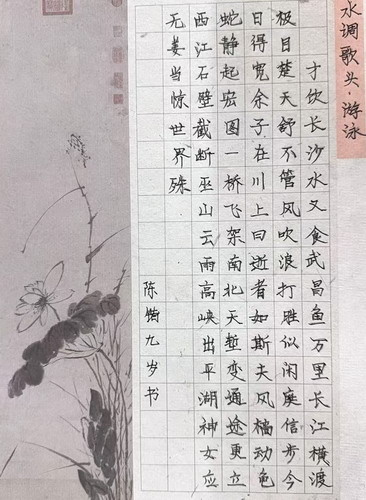 水调歌头·游泳
才饮长沙水又食武昌鱼万里长江横渡
极目楚天舒不管风吹浪打胜似闲庭信步今
日得宽余子在川上曰逝者如斯夫风樯动龟
蛇静起宏图一桥飞架南北天堑变通途更立
西江石壁截断巫山云雨高峡出平湖神女应
无姜当惊世界殊
陈九岁书